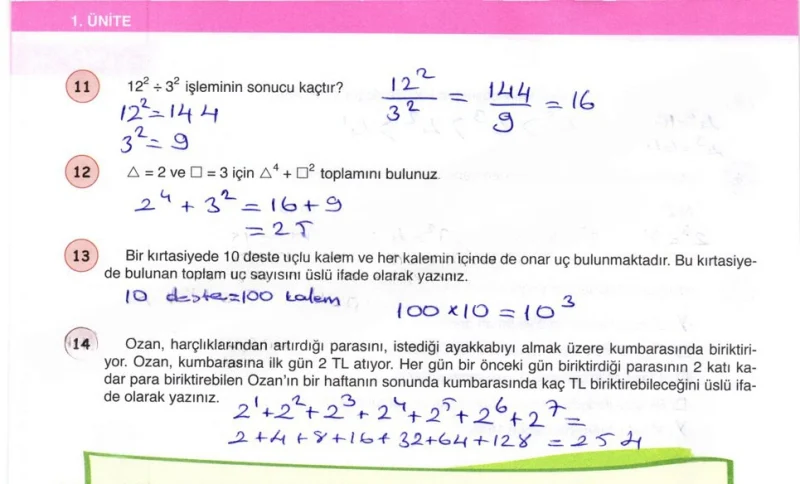 1. ÜNİTE
11 12² ÷ 3² işleminin sonucu kaçtır?
12² = 144
3² = 9
12²/3² = 144/9 = 16
12 △ = 2 ve □ = 3 için △⁴ + □² toplamını bulunuz.
2⁴ + 3² = 16+9
= 25
13 Bir kırtasiyede 10 deste uçlu kalem ve her kalemin içinde de onar uç bulunmaktadır. Bu kırtasiye-
de bulunan toplam uç sayısını üslü ifade olarak yazınız.
10 deste=100 kalem 100 x 10 = 10³
14 Ozan, harçlıklarından artırdığı parasını, istediği ayakkabıyı almak üzere kumbarasında biriktiri-
yor. Ozan, kumbarasına ilk gün 2 TL atıyor. Her gün bir önceki gün biriktirdiği parasının 2 katı ka-
dar para biriktirebilen Ozan'ın bir haftanın sonunda kumbarasında kaç TL biriktirebileceğini üslü ifa-
de olarak yazınız.
2¹+2²+2³+2⁴+2⁵+2⁶+2⁷=
2+4+8+16+32+64+128 = 254